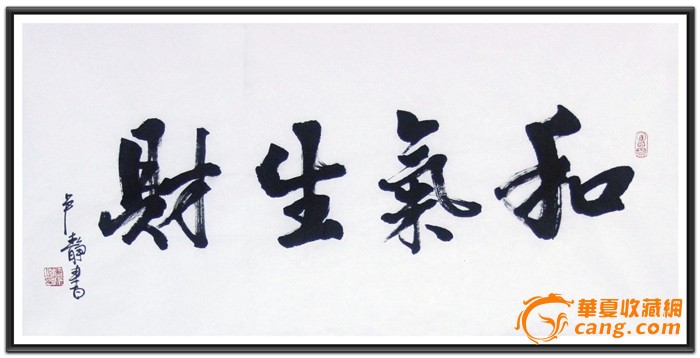 和氣生財
卢静書
華夏收藏網
cang.com